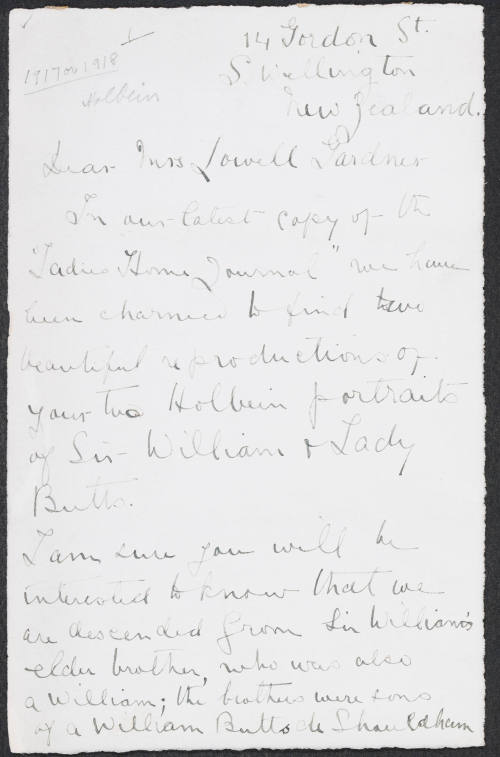 1
14 Gordon St.
1917 or 1918
S. Wellington
Holbein
New Zealand.
Dear Mrs Lowell Gardner
In our latest copy of the
"Ladies Home Journal" we have
been charmed to find two
beautiful reproductions of
your two Holbein portraits
of Sir William & Lady
Butts.
I am sure you will be
interested to know that we
are descended from Sir William's
elder brother, who was also
a William; the brothers were sons
of a William Butts de Shouldham